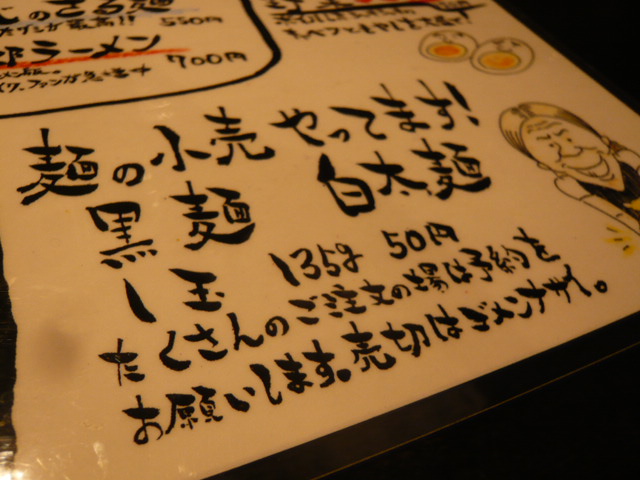 のざる麺
最高!! 550円
郎ラーメン
700円
ファンが急増中
キャベツともやし
麺の小売やってます!
黒麺 白太麺
一玉 135g 50円
たくさんのご注文の場は予約を
お願いします。売切はゴメンナサイ。